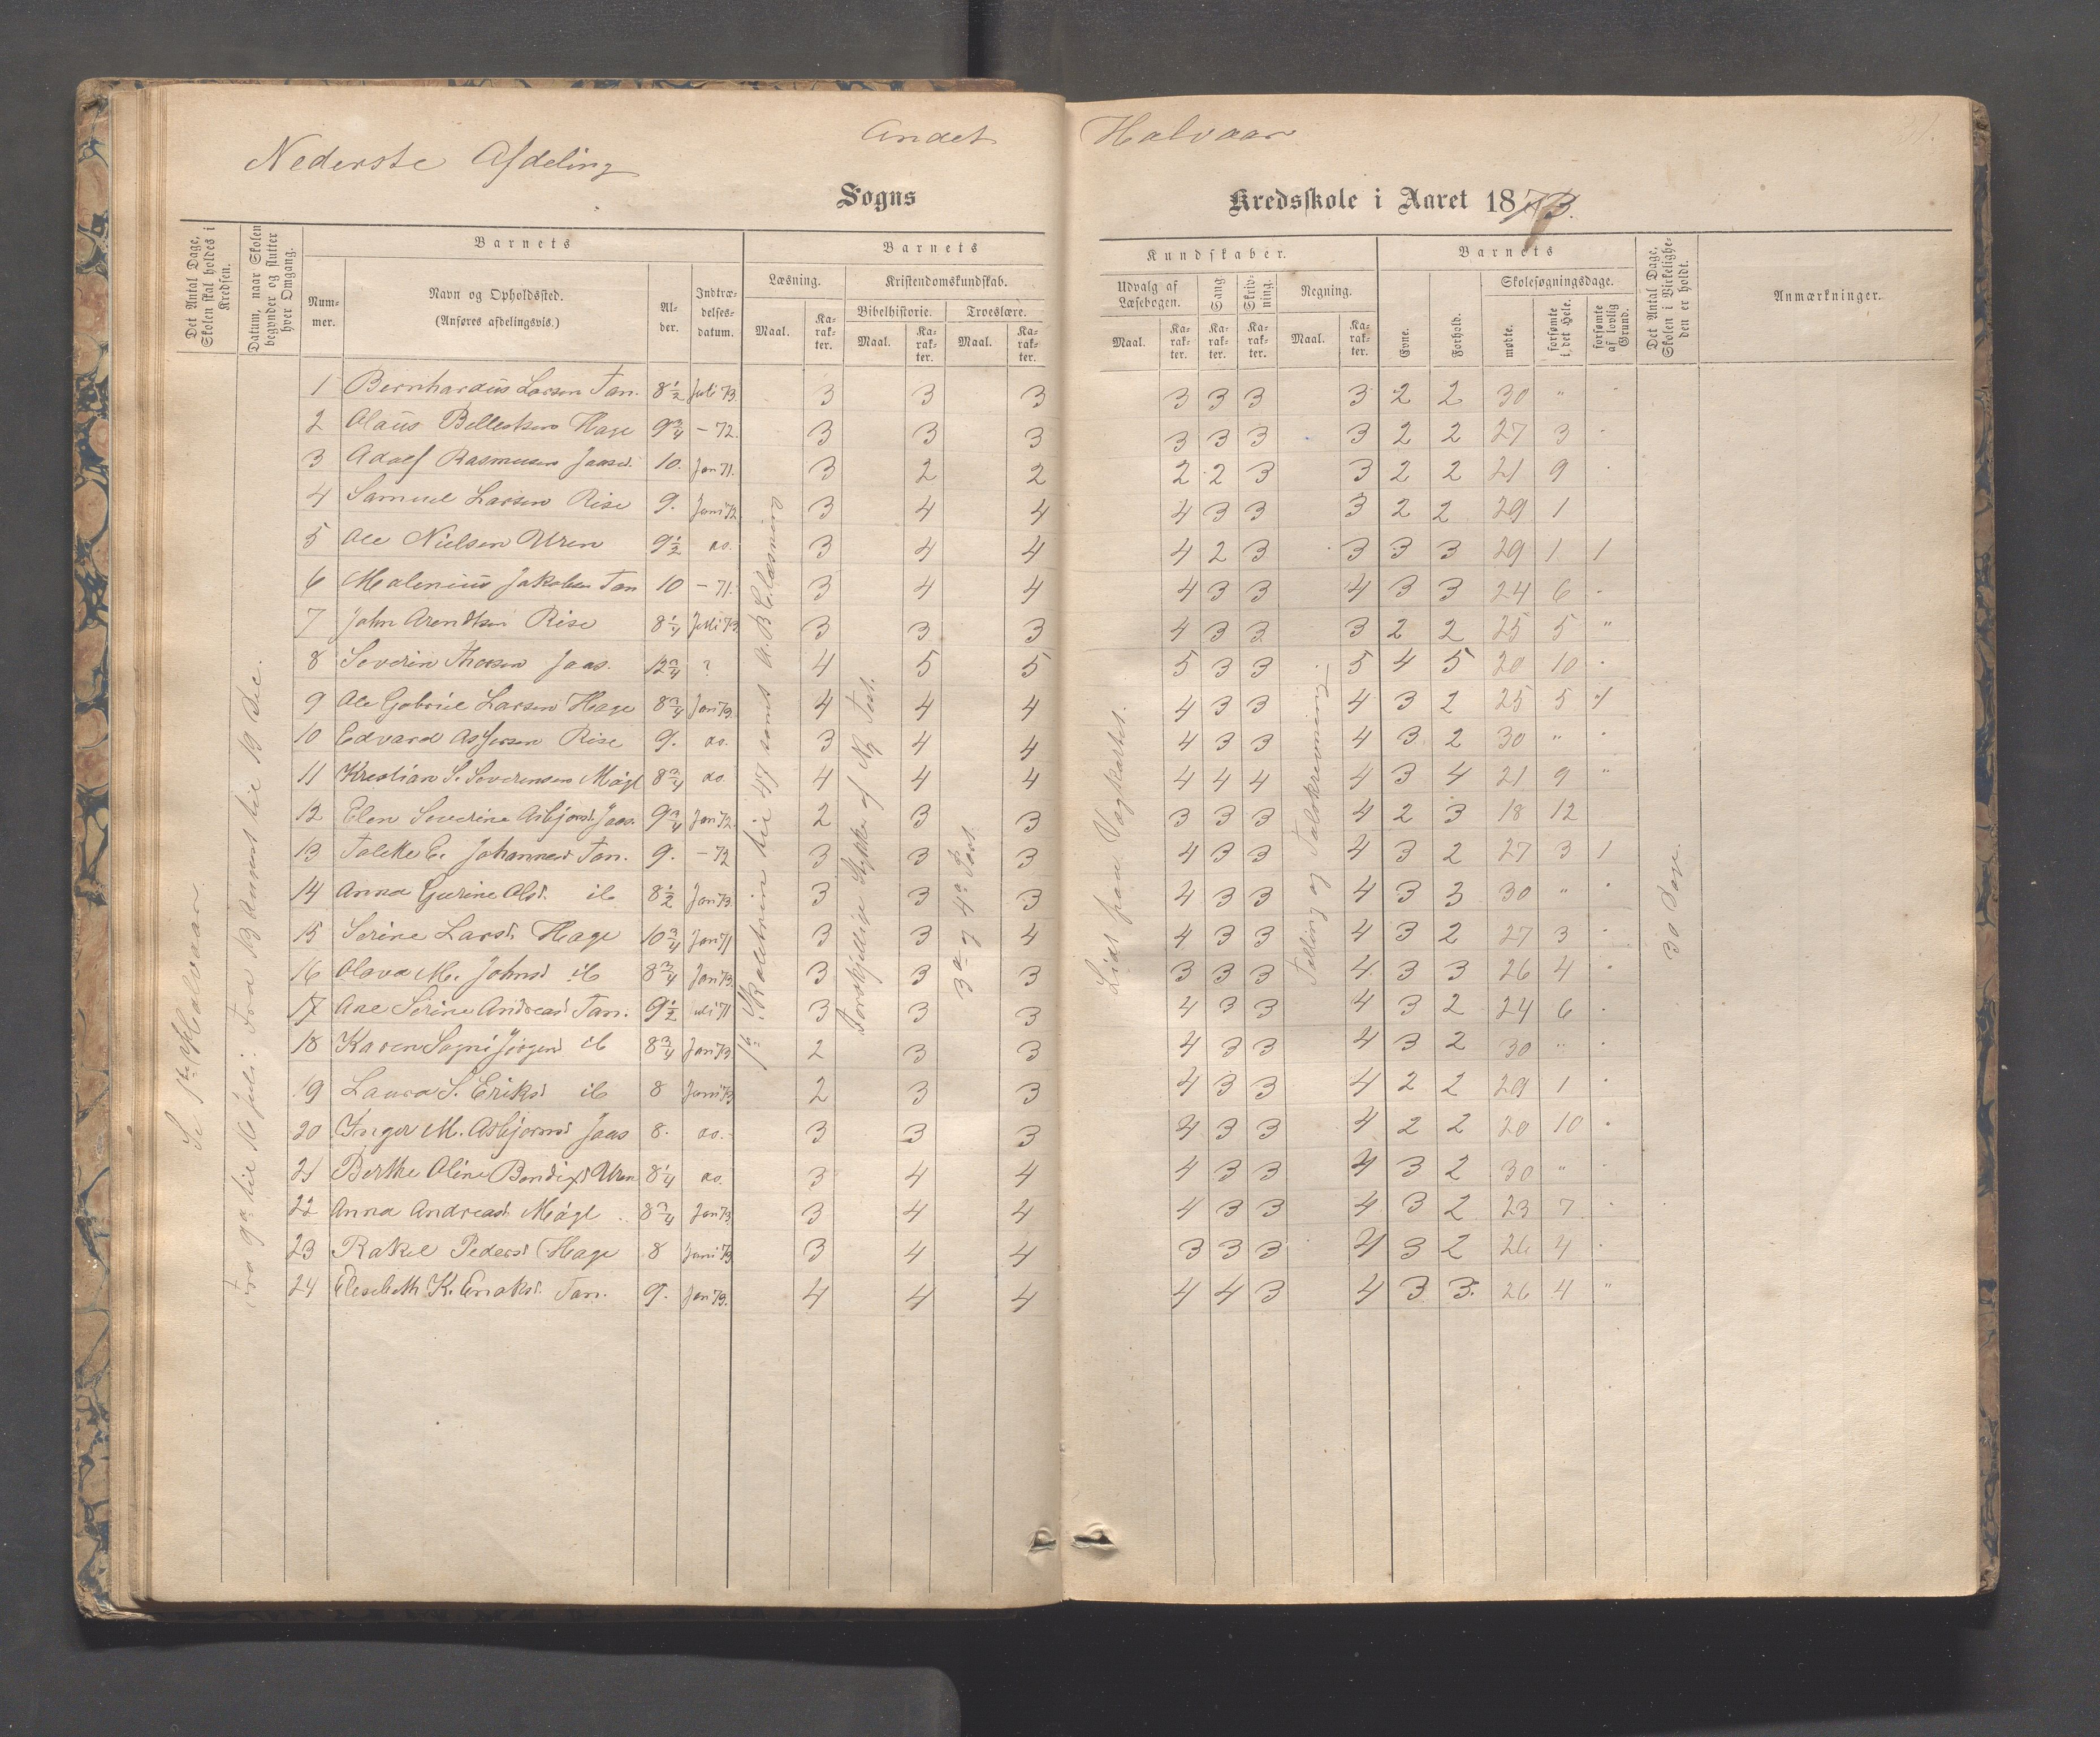 Nederste Afdeling
Andet Halvaar
Sogns Kredsskole i Aaret 1873.
Det Antal Dage, Skolen skal holdes i Kredsen.
Datum, naar Skolen begynder og slutter hver Omgang.
Barnets
Num-mer.
Navn og Opholdssted.
(Anføres afdelingsvis.)
Al-der.
Indtræ-delses-datum.
Barnets Kundskaber.
Læsning.
Kristendomskundskab.
Bibelhistorie.
Troeslære.
Udvalg af Læsebogen.
Sang
Skriv-ning.
Regning.
Maal.
Ka-rak-ter.
Barnets
Evne.
Forhold.
Skolesøgningsdage.
mødte.
forsømte i det Hele.
forsømte af lovlig Grund.
Det Antal Dage, Skolen i Virkelighe-den er holdt.
Anmærkninger.
Se 1ste Halvaar.
Fra 9de til 16 Juli. Fra 13 August til 13 Dec.
1ste Skoletrin til 49 samt A.B.C. læsning
Forskjellige Stykker af N. Test.
3die og 4de Part.
Lidt fran Vægkartet.
Telling og Talskrevning.
30 Dage.
1 Bernhardus Larsen Tan. 8½ Juli 73. 3 3 3 3 3 3 3 2 2 30 "
2 Olaus Bellesen Hage 9¾ - 72. 3 3 3 3 3 3 3 2 2 27 3
3 Adolf Rasmusen Jaasd. 10. Jan 71. 3 2 2 2 2 3 3 2 2 21 9
4 Samuel Larsen Rise 9. Juni 72 3 4 4 4 3 3 3 2 2 29 1
5 Ole Nielsen Uren 9½ do. 3 4 4 4 2 3 3 3 3 29 1 1
6 Malenius Jakobsen Tan 10 - 71. 3 4 4 4 3 3 4 3 3 24 6
7 John Arendtsen Rise 8¼ Juli 73 3 3 3 4 3 3 3 2 2 25 5 "
8 Severin Thorsen Jaas. 12¾ ? 4 5 5 5 3 3 5 4 5 20 10
9 Ole Gabriel Larsen Hage 8¾ Jan 73. 4 4 4 4 3 3 4 3 2 25 5 1
10 Edvard Asgersen Rise 9. do. 3 4 4 4 3 3 4 3 2 30 "
11 Kristian S. Severensen Mågl 8¾ do. 4 4 4 4 4 4 4 3 4 21 9 "
12 Elen Severine Asbjørnsd. Jaas. 9¾ Jan 72. 2 3 3 3 3 3 4 2 3 18 12
13 Talette E. Johannesd Tan. 9. - 72 3 3 3 4 3 3 4 3 2 27 3 1
14 Anna Gurine Olsd. ib 8½ Jan 73. 3 3 3 4 3 3 4 3 3 30 "
15 Serine Larsd. Hage 10¾ Jan 71 3 3 4 4 3 3 4 3 2 27 3
16 Olava M. Johnsd ib 8¾ Jan 73. 3 3 3 3 3 3 4. 3 3 26 4
17 Ane Serine Andreasd Tan. 9½ Juli 71 3 3 3 4 3 3 4 3 2 24 6
18 Karen Sogni Jørgensd ib 8¾ Jan 73 2 3 3 4 3 3 4 3 2 30 "
19 Laura S. Eriksd ib 8 Juni 73 2 3 3 4 3 3 4 2 2 29 1
20 Inger M. Asbjørnsd Jaas 8. do. 3 3 3 4 3 3 4 2 2 20 10
21 Berthe Oline Bendixsd Uren 8¼ do. 3 4 4 4 3 3 4 3 2 30 "
22 Anna Andreasd. Mågl 8¾ Jan 73 3 4 4 4 3 3 4 3 2 23 7
23 Rakel Pedersd Hage 8 Juni 73 3 4 4 3 3 3 4 3 2 26 4
24 Elisebeth K. Enoksd. Tan. 9. Jan 73. 4 4 4 4 4 3 4 3 3. 26 4 "